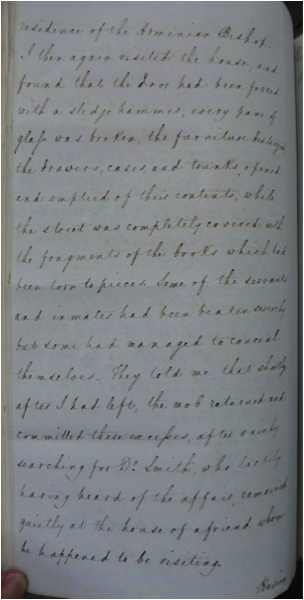 residence of the Armenian Bishop.
I then again visited the house, and
found that the door had been forced
with a sledge hammer, every pane of
glass was broken, the furniture destroyed
the drawers, cases, and trunks, opened
and emptied of their contents, while
the street was completely covered with
the fragments of the books which had
been torn to pieces. Some of the servants
and inmates had been beaten severely
but some had managed to conceal
themselves. They told me that shortly
after I had left, the mob returned and
committed these excesses, after vainly
searching for Dr. Smith, who luckily
having heard of the affair, remained
quietly at the house of a friend whom
he happened to be visiting.
Having